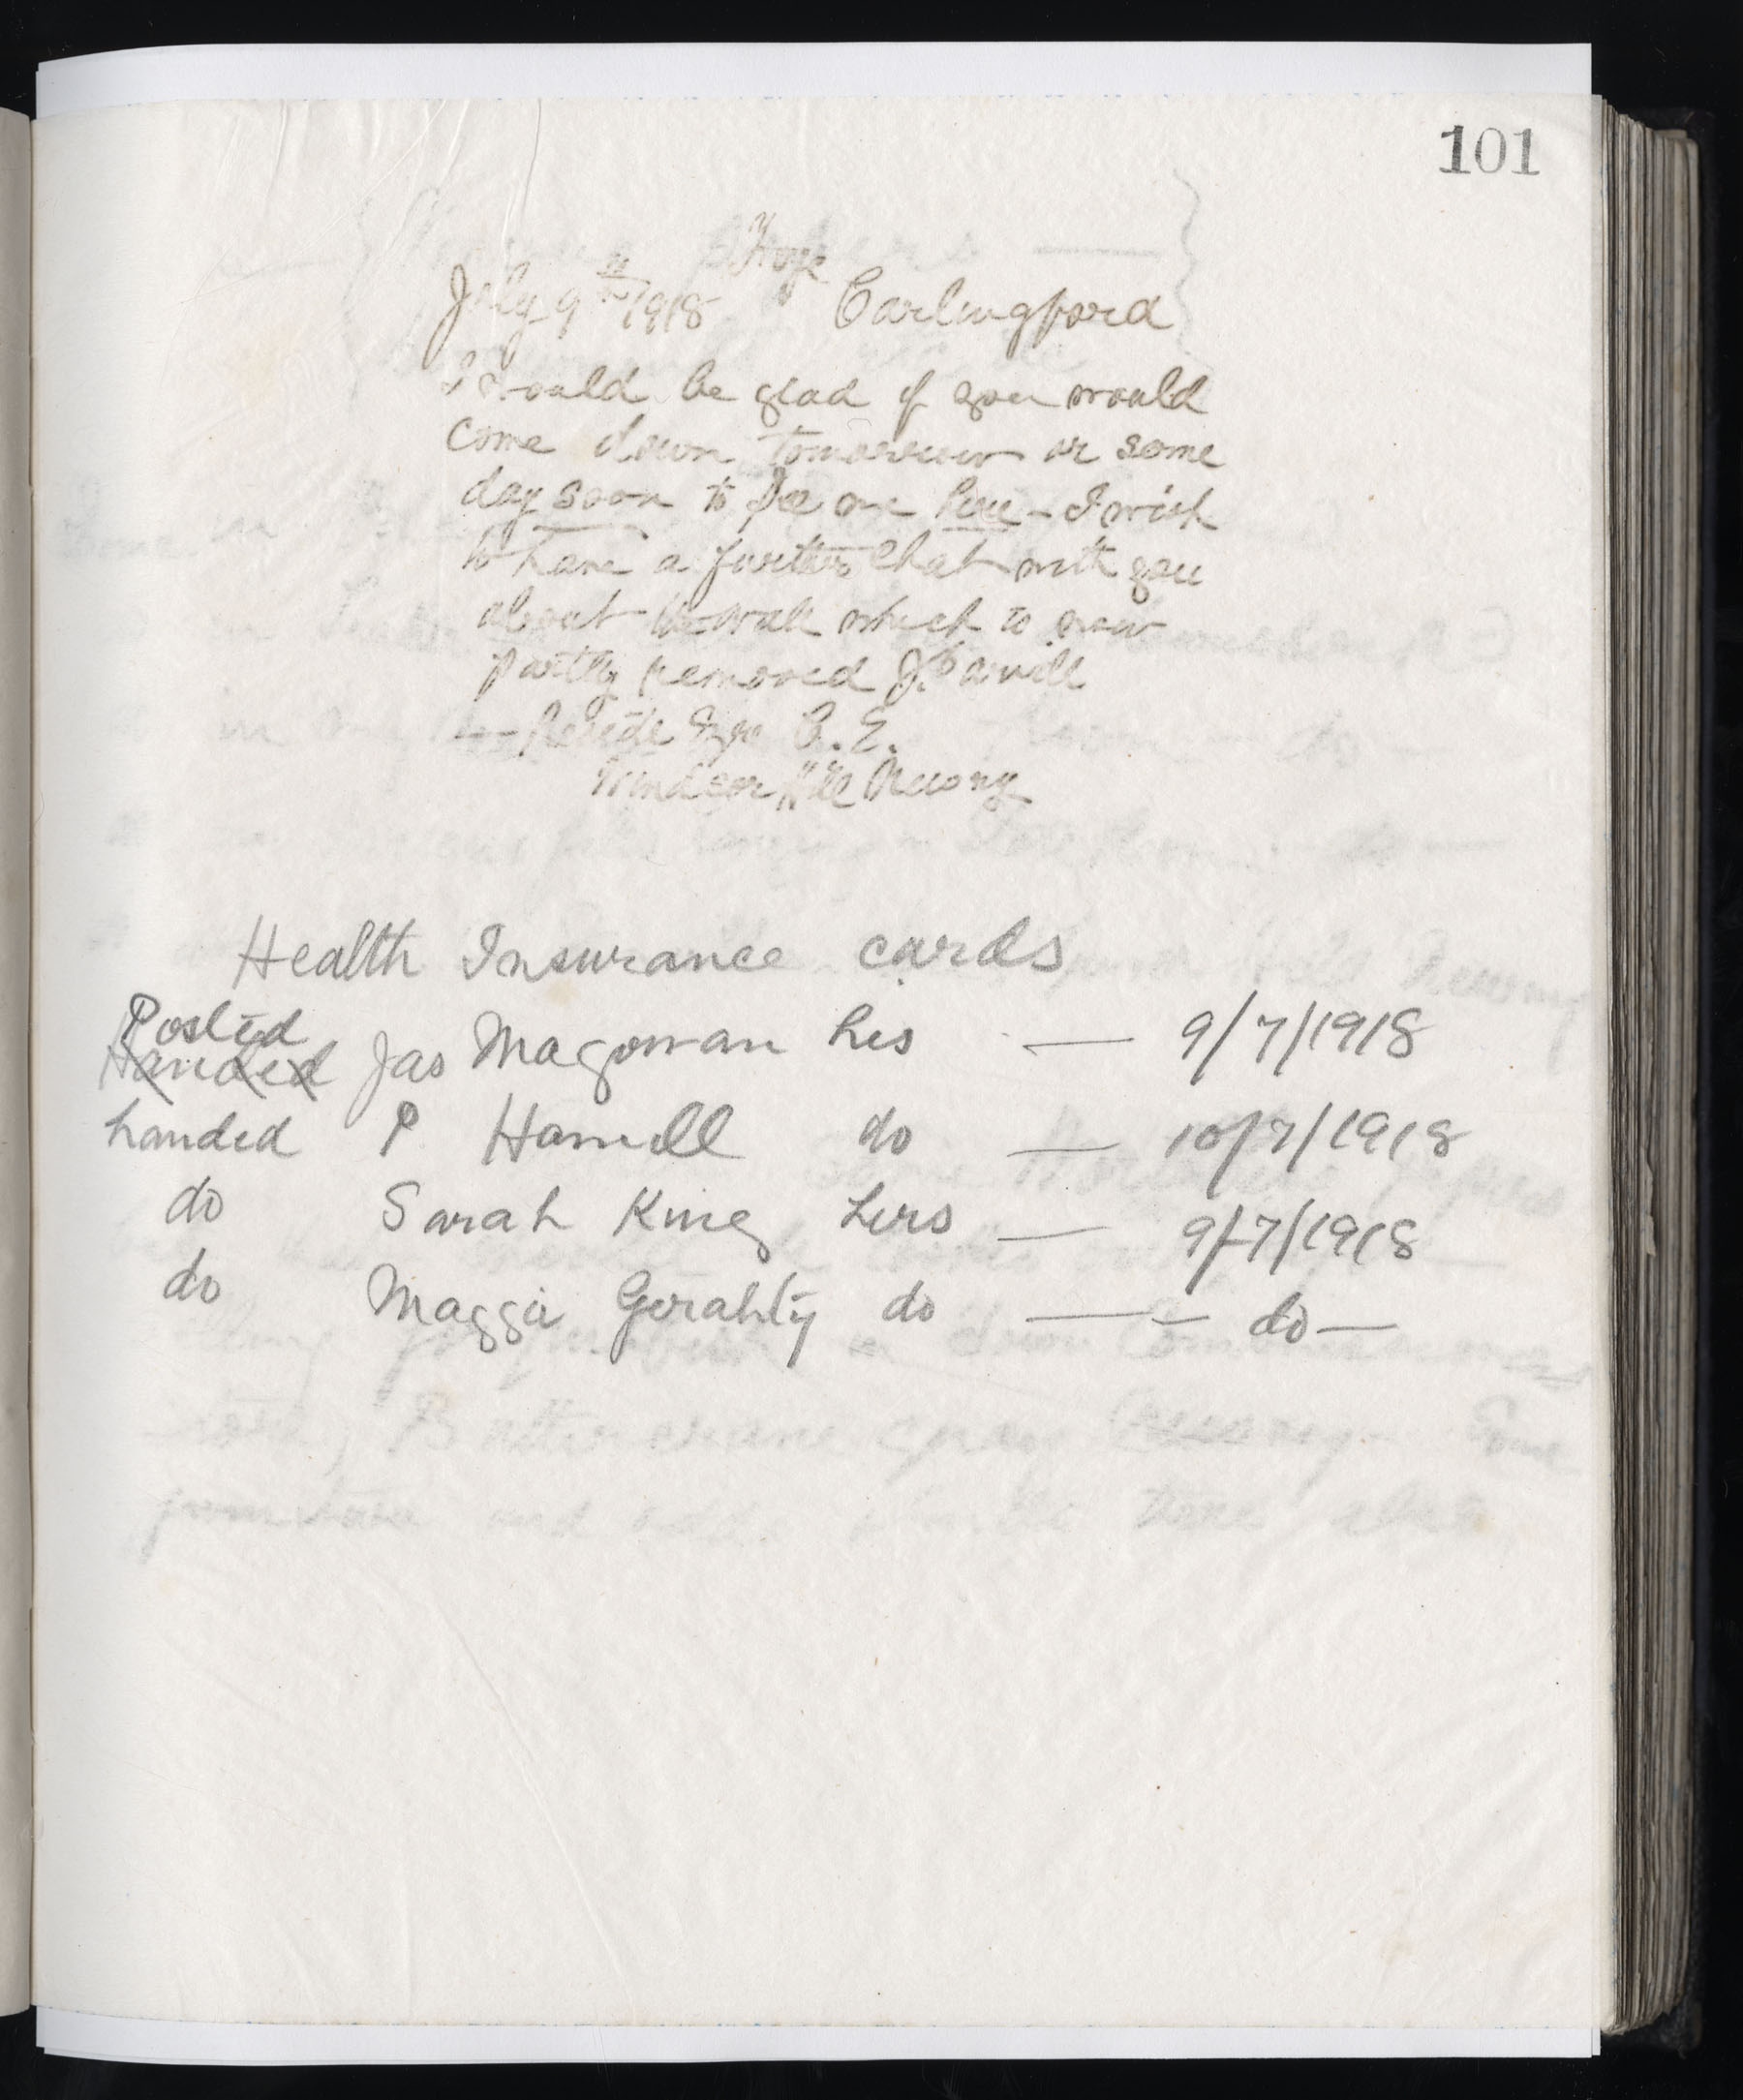 101
July 9th 1918 Carlingford
I would be glad if you would
come down tomorrow or some
day soon to see me here - I wish
to have a further chat with you
about the wall which is now
partly removed
Esqr C.E.
Windsor Hill Newry
Health Insurance cards
Posted
Handed Jas Magowan his — 9/7/1918
handed P Hamill do — 10/7/1918
do Sarah King hers — 9/7/1918
do Maggie Gerahty do — — do —